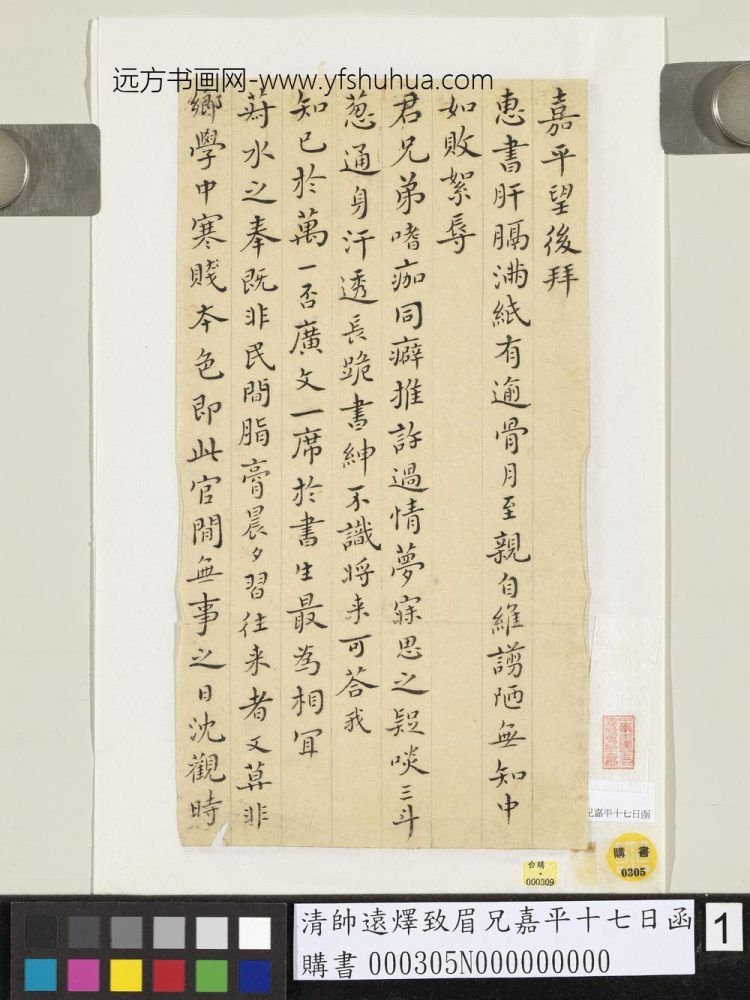 远方书画网-www.yfshuhua.com
嘉平望後拜
惠書肝膈満紙有逾骨月至親自維謭陋無知中
如敗絮辱
君兄弟嗜痂同癖推許過情夢寐思之疑啖三斗
葱通身汗透長跪書紳不識將来可荅我
知己於萬一否廣文一席於書生最為相宜
薪水之奉既非民間脂膏晨夕習往来者又莫非
鄉學中寒賤本色即此官閒無事之日沈觀時
兄嘉平十七日函
購書
0305
台購
000309
清帥遠燡致眉兄嘉平十七日函
購書 000305N000000000
1